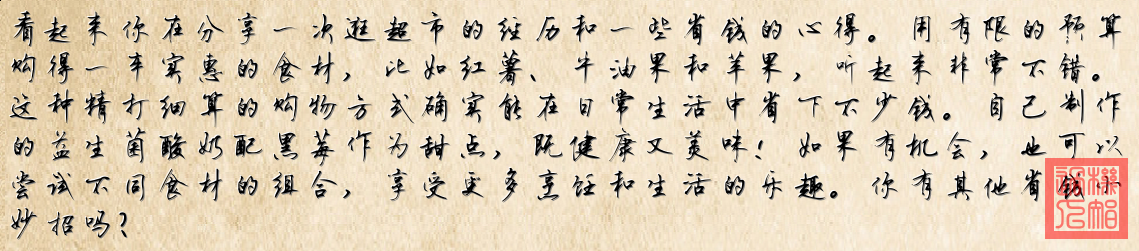 看起来你在分享一次逛超市的经历和一些省钱的心得。用有限的预算
购得一车实惠的食材，比如红薯、牛油果和苹果，听起来非常不错。
这种精打细算的购物方式确实能在日常生活中省下不少钱。自己制作
的益生菌酸奶配黑莓作为甜点，既健康又美味！如果有机会，也可以
尝试不同食材的组合，享受更多烹饪和生活的乐趣。你有其他省钱小
妙招吗？